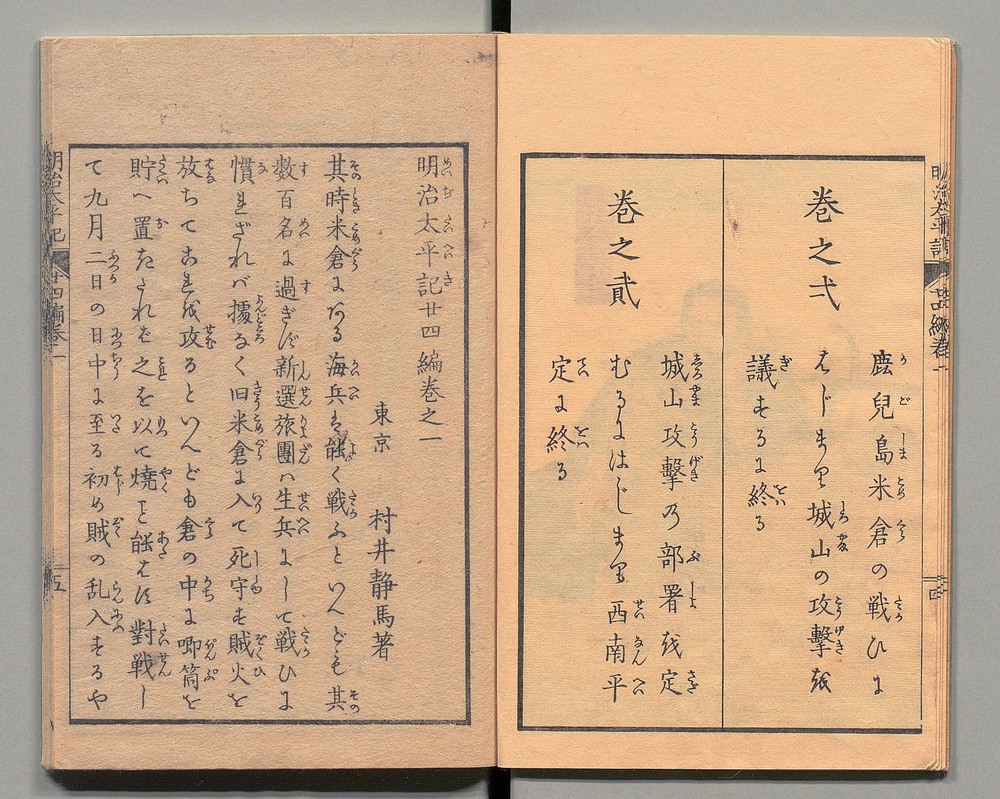 巻之弌
鹿兒島米倉の戦ひに
はじまり城山の攻撃を
議するに終る
巻之貳
城山攻撃の部署を定
むるにはじまり西南平
定に終る
明治太平記廿四編巻之一
東京 村井静馬著
其時米倉にある海兵も能く戦ふといへども其
数百名に過ぎず新選旅團ハ生兵にして戦ひに
慣れざれバ據なく旧米倉に入て死守も賊火を
放ちてこれを攻るといへども倉の中に喞筒を
貯へ置たれバ之を以て焼を能はず對戦し
て九月二日の日中に至る初め賊の乱入するや
明治太平記 廿四編巻一 五